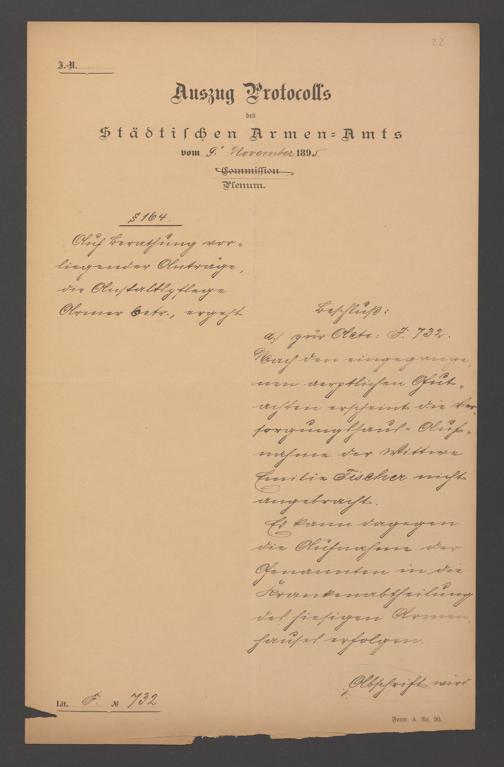 22
J.-N.
Auszug Protocolls
des
Städtischen Armen=Amts
vom 9. November 1895
Commission
Plenum.
§ 164.
Auf Berathung vor=
liegender Anträge,
die Anstaltspflege
Armer betr., ergeht
Beschluß:
a) zur Acte: F. 732.
Nach den eingegange=
nen aerztlichen Gut=
achten erscheint die Ver=
sorgungshaus=Auf=
nahme der Wittwe
Emilie Fischer nicht
angebracht.
Es kann dagegen
die Aufnahme der
Genannten in die
Krankenabtheilung
des hiesigen Armen
hauses erfolgen.
Abschrift wird
Lit. F. № 732
Form. A. No. 50.